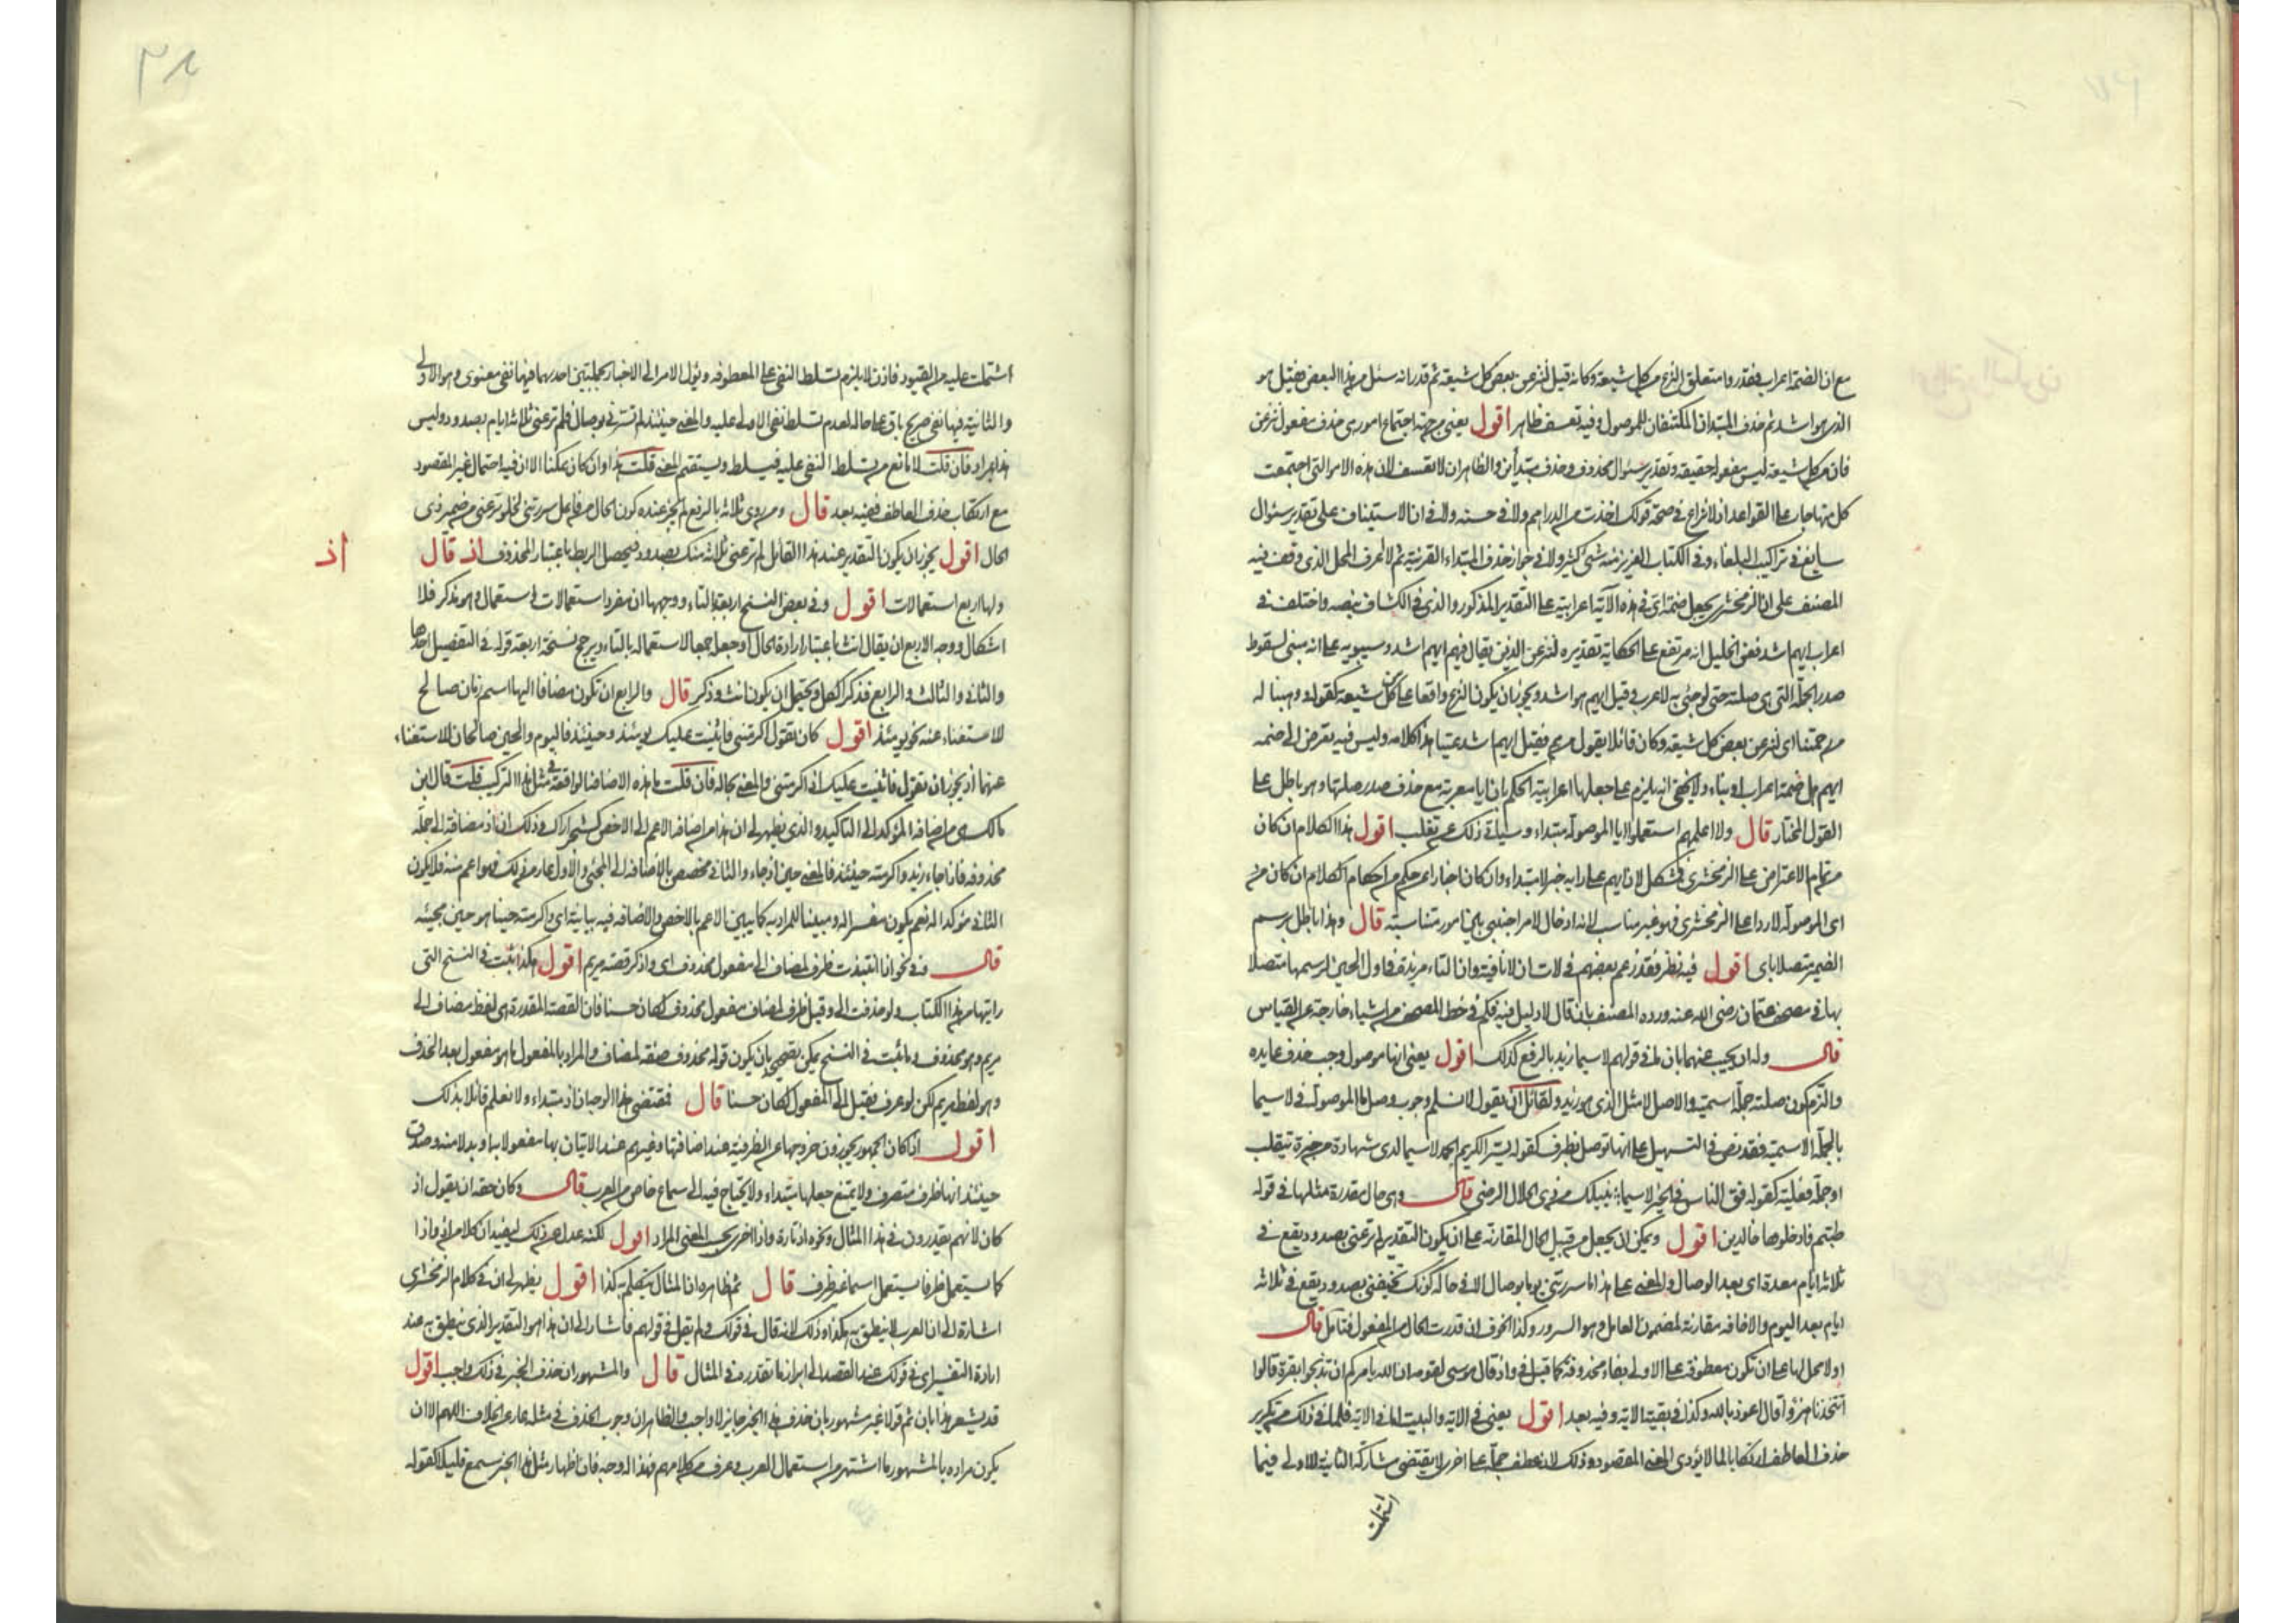 مع ان الضمة اعراب فقدروا متعلق النزع من كل شيعة وكانه قيل لننزعن بعض كل شيعة ثم قدر انه سئل من هذا البعض فقيل هو
الذي هو اشد ثم حذف المبتدآن المكتنفان للموصول وفيه تعسف ظاهر اقول يعني من جهة اجتماع امور هي حذف مفعول ننزعن
فان من كل شيعة ليس مفعوله حقيقة وتقدير سؤال محذوف وحذف مبتدأين والظاهر ان لا تعسف لان هذه الامور التي اجتمعت
كل منها جار على القواعد اذ لا نزاع في صحة قولك اخذت من الدراهم ولا في حسنه ولا في ان الاستيناف على تقدير سئوال
سايغ في تراكيب البلغاء وفي الكتاب العزيز منه شئ كثير ولا في جواز حذف المبتداء لقرينة ثم لا اعرف المحل الذي وقف فيه
المصنف على ان الزمخشري يجعل ضمة اي في هذه الآية اعرابية على التقدير المذكور والذي في الكشاف نصه واختلف في
اعراب ايهم اشد فعن الخليل انه مرتفع على الحكاية تقديره لننزعن الذين يقال فيهم ايهم اشد وسيبويه على انه مبني لسقوط
صدر الجملة التي هي صلته حتى لو جئ به لاعرب قيل ايهم هو اشد ويجوز ان يكون النزع واقعا على من كل شيعة كقوله ووهبنا له
من رحمتنا اي لننزعن بعض كل شيعة وكان قائلا يقول من هم فقيل ايهم اشد عتيا هذا كلامه وليس فيه تعرض الى ضمه
ايهم هل ضمة اعراب او بناء ولا يخفى انه يلزم على جعلها اعرابية الحكم بان ايا معربة مع حذف صدر صلتها وهو باطل على
القول المختار قال ولا اعلمهم استعملوا ايا الموصولة مبتداء وسياتي ذلك عن ثعلب اقول هذا الكلام ان كان
من تمام الاعتراض على الزمخشري فمشكل لان ايهم على رايه خبر لا مبتداء وان كان اخبارا عن حكم من احكام الكلام ان كان من
اي الموصولة لا ردا على الزمخشري فهو غير مناسب لانه ادخال لامر اجنبي بين امور متناسبة قال وهذا باطل برسم
الضمير متصلا باي اقول فيه نظر فقد زعم بعضهم في لات ان لا نافية وان التاء مزيدة في اول الحين لرسمها متصلا
بها في مصحف عثمان رضي الله عنه ورده المصنف بان قال لا دليل فيه فكم في خط المصحف من اشياء خارجة عن القياس
قال وله ان يجيب عنهما بان ما في قولهم لا سيما زيد بالرفع كذلك اقول يعني انها موصول وجب حذف عايده
والتزم كون صلته جملة اسمية والاصل لا مثل الذي هو زيد ولقائل ان يقول لا نسلم وجوب وصل ما الموصولة في لا سيما
بالجملة الاسمية فقد نص في التسهيل على انها توصل بظرف كقوله يسر الكريم الحمد لا سيما لدى شهادة من خيره يتقلب
او جملة فعلية كقوله فق الناس في الخير لا سيما ينيلك من ذي الجلال الرضى قال وهي حال مقدرة مثلها في قوله
طبتم فادخلوها خالدين اقول ويمكن ان يجعل من قبيل الحال المقارنة على ان يكون التقدير لم ترعني بصدود يقع في
ثلاثة ايام معدة اي بعد الوصال والمعنى على هذا ما سررتني يوما بوصال الا في حال كونك تخيفني بصدود يقع في ثلاثة
ايام بعد اليوم والاخافة مقارنة لمضمون العامل وهو السرور وكذا الخوف ان قدرت الحال من المفعول فتامل قال
اولا محل لها على ان تكون معطوفة على الاولى بفاء محذوفة كما قيل في واذ قال موسى لقومه ان الله يامركم ان تذبحوا بقرة قالوا
اتتخذنا هزؤا قال اعوذ بالله وكذا في بقية الاية وفيه بعد اقول يعني في الاية والبيت اما في الاية فلما في ذلك من تكرير
حذف العاطف ارتكابا لما لا يؤدي المعنى المقصود وذلك لان عطف جملة على اخرى لا يقتضي مشاركة الثانية للاولى فيما
اشتملت
اشتملت عليه من القيود فاذن لا يلزم تسلط النفي على المعطوفة ويؤل الامر الى الاخبار بجملتين احديهما فيها نفي معنوي وهو الاولى
والثانية فيها نفي صريح باق على حاله لعدم تسلط نفي الاولى عليه والمعنى حينئذ لم تسرني بوصال فلم ترعني ثلاثة ايام بصدود وليس
هذا بمراد فان قلت لا مانع من تسلط النفي عليه فيسلط ويستقيم المعنى قلت هذا وان كان ممكنا الا ان فيه احتمال غير المقصود
مع ارتكاب حذف العاطف ففيه بعد قال ومن روى ثلاثة بالرفع لم يجز عنده كون الحال من فاعل سررتني لخلو ترعني من ضمير ذي
الحال اقول يجوز ان يكون التقدير عند هذا القائل لم ترعني ثلاثة منك بصدود فيحصل الربط باعتبار المحذوف اذ قال
اذ
ولها اربع استعمالات اقول وفي بعض النسخ اربعة بالتاء ووجهها ان مفرد استعمالات استعمال وهو مذكر فلا
اشكال ووجه الاربع ان يقال انث باعتبار ارادة الحال او جعله جمعا لاستعماله بالتاء ويرجح نسخة اربعة قوله في التفصيل احدها
والثاني والثالث والرابع فذكر الكل ويحتمل ان يكون انث وذكر قال والرابع ان تكون مضافا اليها اسم زمان صالح
للاستغناء عنه نحو يومئذ اقول كان تقول اكرمتني فاثنيت عليك يومئذ وحينئذ فاليوم والحين صالحان للاستغناء
عنهما اذ يجوز ان تقول فاثنيت عليك اذ اكرمتني والمعنى بحاله فان قلت ما هذه الاضافة الواقعة في مثل هذا التركيب قلت قال ابن
مالك هي من اضافة المؤكد الى التاكيد والذي يظهر لي ان هذا من اضافة الاعم الى الاخص كشجر اراك وذلك ان اذ مضافة الى جملة
محذوفة فاذا جاء زيد واكرمته حينئذ فالمعنى حين اذ جاء والثاني مخصص بالاضافة الى المجئ والاول عار من ذلك فهو اعم منه فلا يكون
الثاني مؤكدا له نعم يكون مفسرا له ومبينا للمراد به كما يبين الاعم بالاخص والاضافة فيه بيانية اي واكرمته حينا هو حين مجيئه
قال في نحو اذ انتبذت ظرف لمضاف الى مفعول محذوف اي واذكر قصة مريم اقول هكذا ثبت في النسخ التي
رايتها من هذا الكتاب ولو حذفت الى وقيل ظرف لمضاف مفعول محذوف لكان حسنا فان القصة المقدرة هي لفظ مضاف الى
مريم وهو محذوف وما ثبت في النسخ يمكن تصحيحه بان يكون قوله محذوف صفة لمضاف والمراد بالمفعول ما هو مفعول بعد الحذف
وهو لفظ مريم لكن لو عرف فقيل الى المفعول لكان حسنا قال فمقتضى هذا الوجه ان اذ مبتداء ولا نعلم قائلا بذلك
اقول اذا كان الجمهور يجوزون خروجها عن الظرفية عند اضافتها وغيرهم عند الاتيان بها مفعولا به او بدلا منه وصدق
حينئذ انها ظرف متصرف ولا يمتنع جعلها مبتداء ولا يحتاج فيه الى سماع خاص من العرب قال وكان حقه ان يقول اذ
كان لانهم يقدرون في هذا المثال ونحوه اذ تارة واذا اخرى بحسب المعنى المراد اقول لكنه عدل عن ذلك ليفيد ان كلا من اذ واذا
كما يستعمل ظرفا يستعمل اسما غير ظرف قال ثم ظاهره ان المثال يتكلم به كذا اقول يظهر لي ان في كلام الزمخشري
اشارة الى ان العرب لا ينطق به هكذا وذلك لانه قال في قولك ولم يقل في قولهم فاشار الى ان هذا هو التقدير الذي ينطق به عند
ارادة التفسير اي في قولك عند القصد الى ابراز ما تقدره في المثال قال والمشهور ان حذف الخبر في ذلك واجب اقول
قد يشعر هذا بان ثم قولا غير مشهور بان حذف هذا الخبر جايز لا واجب والظاهر ان وجوب الحذف في مثله عار عن الخلاف اللهم الا ان
يكون مراده بالمشهور ما اشتهر من استعمال العرب وعرف من كلامهم فهذا له وجه فان اظهار مثل هذا الخبر سمع قليلا كقوله